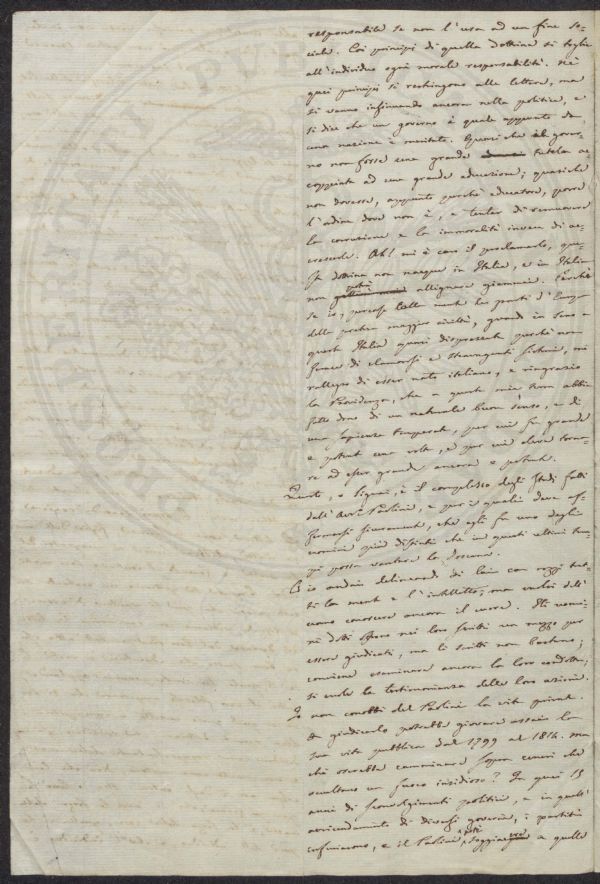 responsabile se non l'usa ad un fine so-
ciale. Coi principi di quella dottrina si toglie
all'individuo ogni morale responsabilità. Nè
quei principi si restringono alle lettere, ma
si vanno infiltrando ancora nella politica, e
si dice che un governo è quale appunto da
una nazione è meritato. Quasi che il gover-
no non fosse una grande tutela ac-
coppiata ad una grande educazione; quasi che
non dovesse, appunto perchè educatore, porre
l'ordine dove non è, e tentar di rimuovere
la corruzione e la immoralità invece di ac-
crescerle. Ah! mi è caro il proclamarlo, que-
sta dottrina non nacque in Italia, e in Italia
non potrà allignare giammai. Perchè
se io, percorse colla mente le parti d'Europa
della pretesa maggior civiltà, guardo in seno a
questa Italia quasi disprezzata perchè non
feconda di clamorosi e stravaganti sistemi, mi
rallegro di esser nato italiano, e ringrazio
la Provvidenza, che a questa mia terra abbia
fatto dono di un naturale buon senso, e di
una sapienza temperata, per cui fu grande
e potente una volta, e per cui dovrà torna-
re ad esser grande ancora e potente.
Questo, o Signori, è il complesso degli Studi fatti
dall'Avv. Paolini, e per i quali deve af-
fermarsi sicuramente, che egli fu uno degli
uomini più distinti che in questi ultimi tem-
pi possa vantare la Toscana.
E io andai delineando di lui con rozzi trat-
ti la mente e l'intelletto; ma vuolsi dell'
uomo conoscere ancora il cuore. Gli uomi-
ni dotti offrono nei loro scritti un mezzo per
essere giudicati, ma li scritti non bastano;
conviene esaminare ancora la loro condotta;
si vuole la testimonianza delle loro azioni.
Io non conobbi del Paolini la vita privata.
A giudicarlo potrebbe giovare assai la
sua vita pubblica dal 1799 al 1814. ma
chi oserebbe camminare sopra ceneri che
occultano un fuoco insidioso? In quei 15
anni di sconvolgimenti politici, e in quell'
avvicendamento di diversi governi, i partiti
, e il Paolini a quello